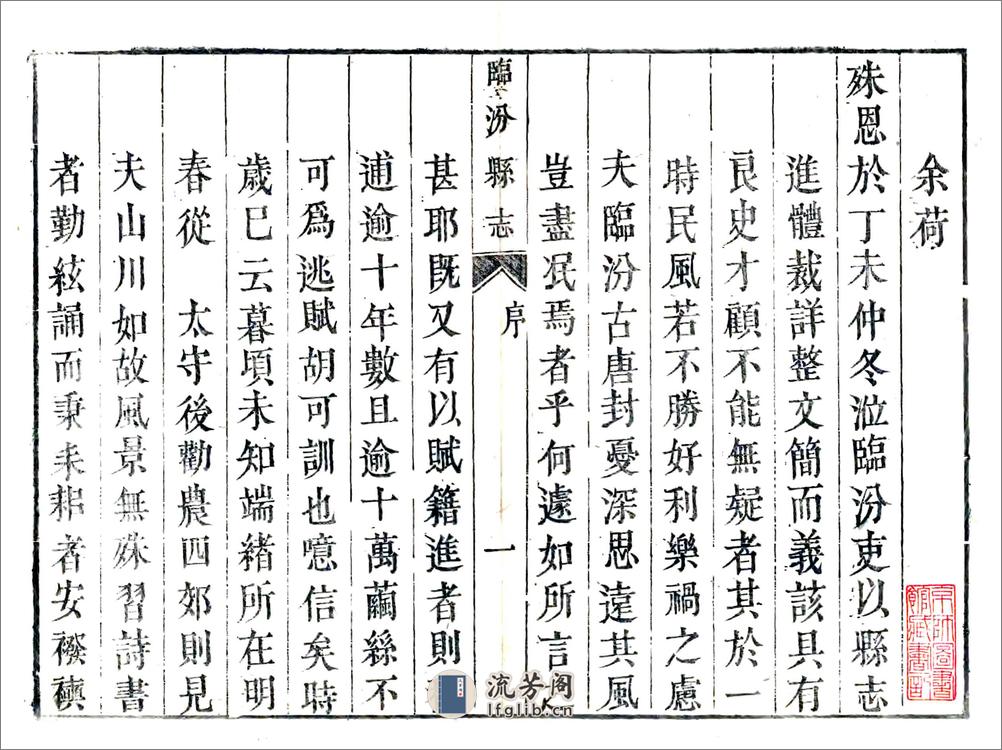 余荷
殊恩於丁未仲冬涖臨汾吏以縣志
進體裁詳整文簡而義該具有
良史才顧不能無疑者其於一
時民風若不勝好利樂禍之慮
夫臨汾古唐封憂深思遠其風
豈盡冺焉者乎何遽如所言
臨汾縣志
序
一
甚耶既又有以賦籍進者則
逋逾十年數且逾十萬繭絲不
可為逃賦胡可訓也噫信矣時
歲巳云暮頃未知端緒所在明
春從 太守後勸農四郊則見
夫山川如故風景無殊習詩書
者勤絃誦而秉耒耜者安襏襫
京師圖書館藏書印
流芳阁
lfglib.cn